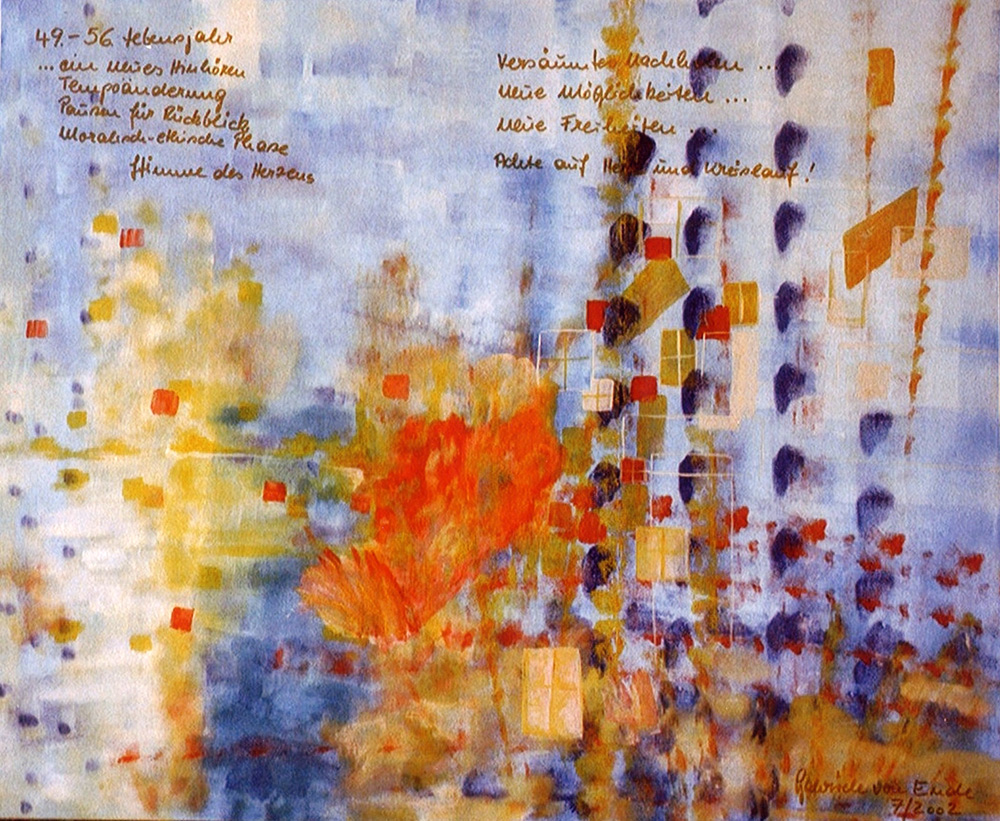 49.-56. Lebensjahr
... ein neues Hinhören
Tempoänderung
Pausen für Rückblick
Moralisch-ethische Phase
Stimme des Herzens
Versäumtes Nachholen ...
Neue Möglichkeiten ...
Neue Freiheiten ...
Achte auf Herz und Kreislauf!
Gabriele von Ende
7/2002